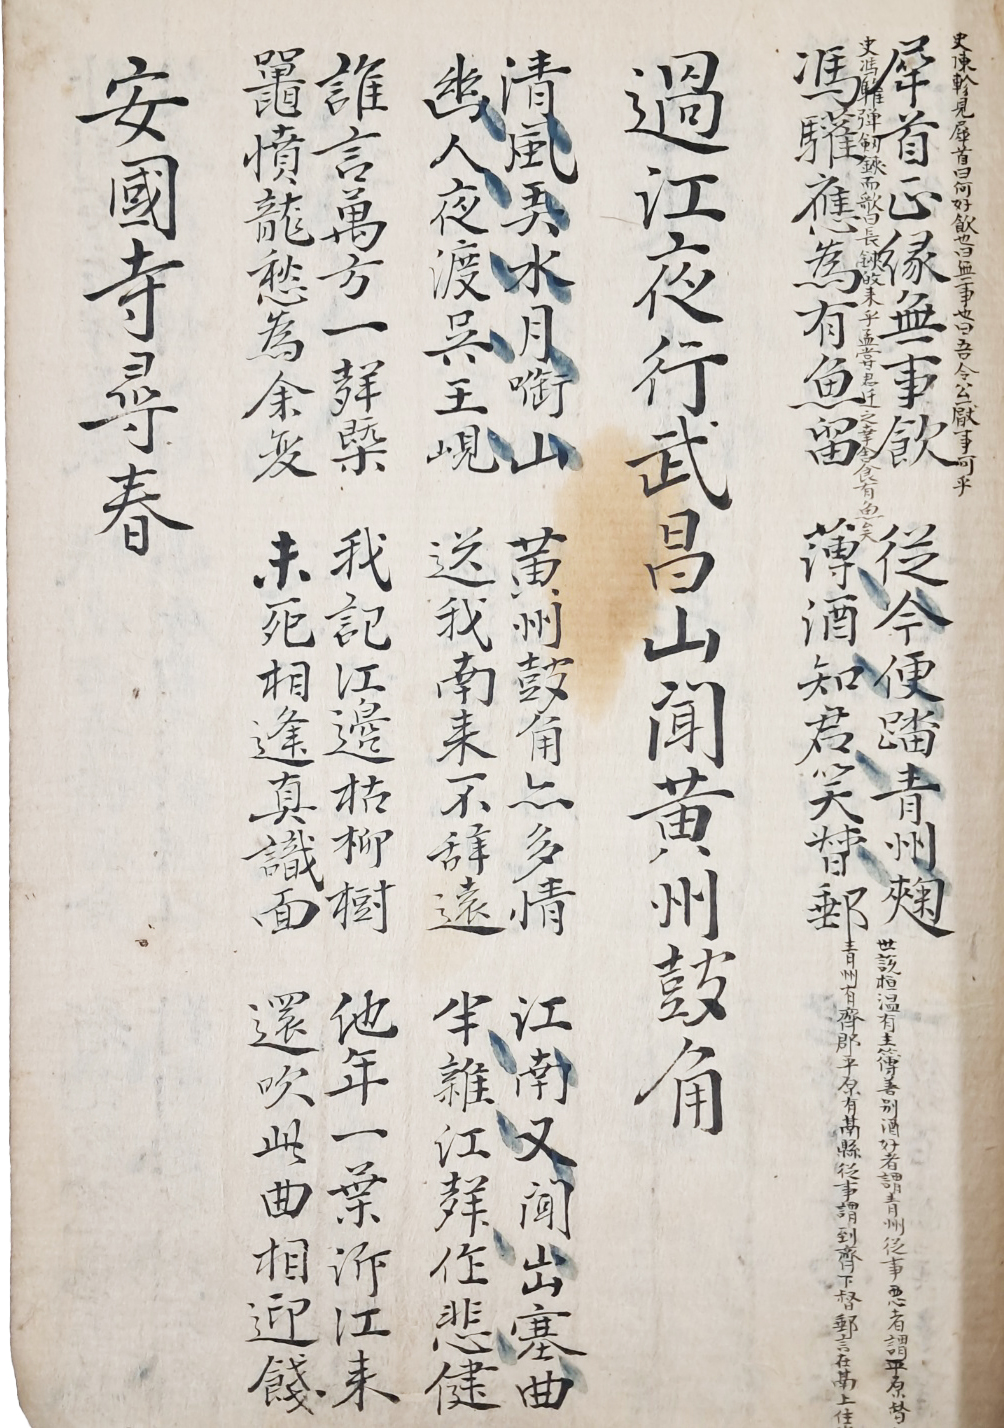 史陳軫見犀首曰何好飲也曰無事也曰吾令公厭事可乎
犀首正緣無事飲 從今便踏青州麹 世說桓温有主簿善別酒好者謂青州從事惡者謂平原督
史馮驩彈劎鋏而歌曰長鋏故来乎孟嘗君迁之幸舍食有魚矣
馮驩應為有魚留 薄酒知君笑督郵 青州有齊郡平原有鬲縣從事謂到齊下督郵言在鬲上住
過江夜行武昌山聞黃州鼓角
清風弄水月啣山 黃州鼓角亦多情 江南又聞出塞曲
幽人夜渡吳王峴 送我南来不辞遠 半雜江聲作悲健
誰言萬方一聲槩 我記江邊枯柳樹 他年一葉泝江来
鼉憤龍愁為余变 未死相逢真識面 還吹此曲相迎餞
安國寺尋春